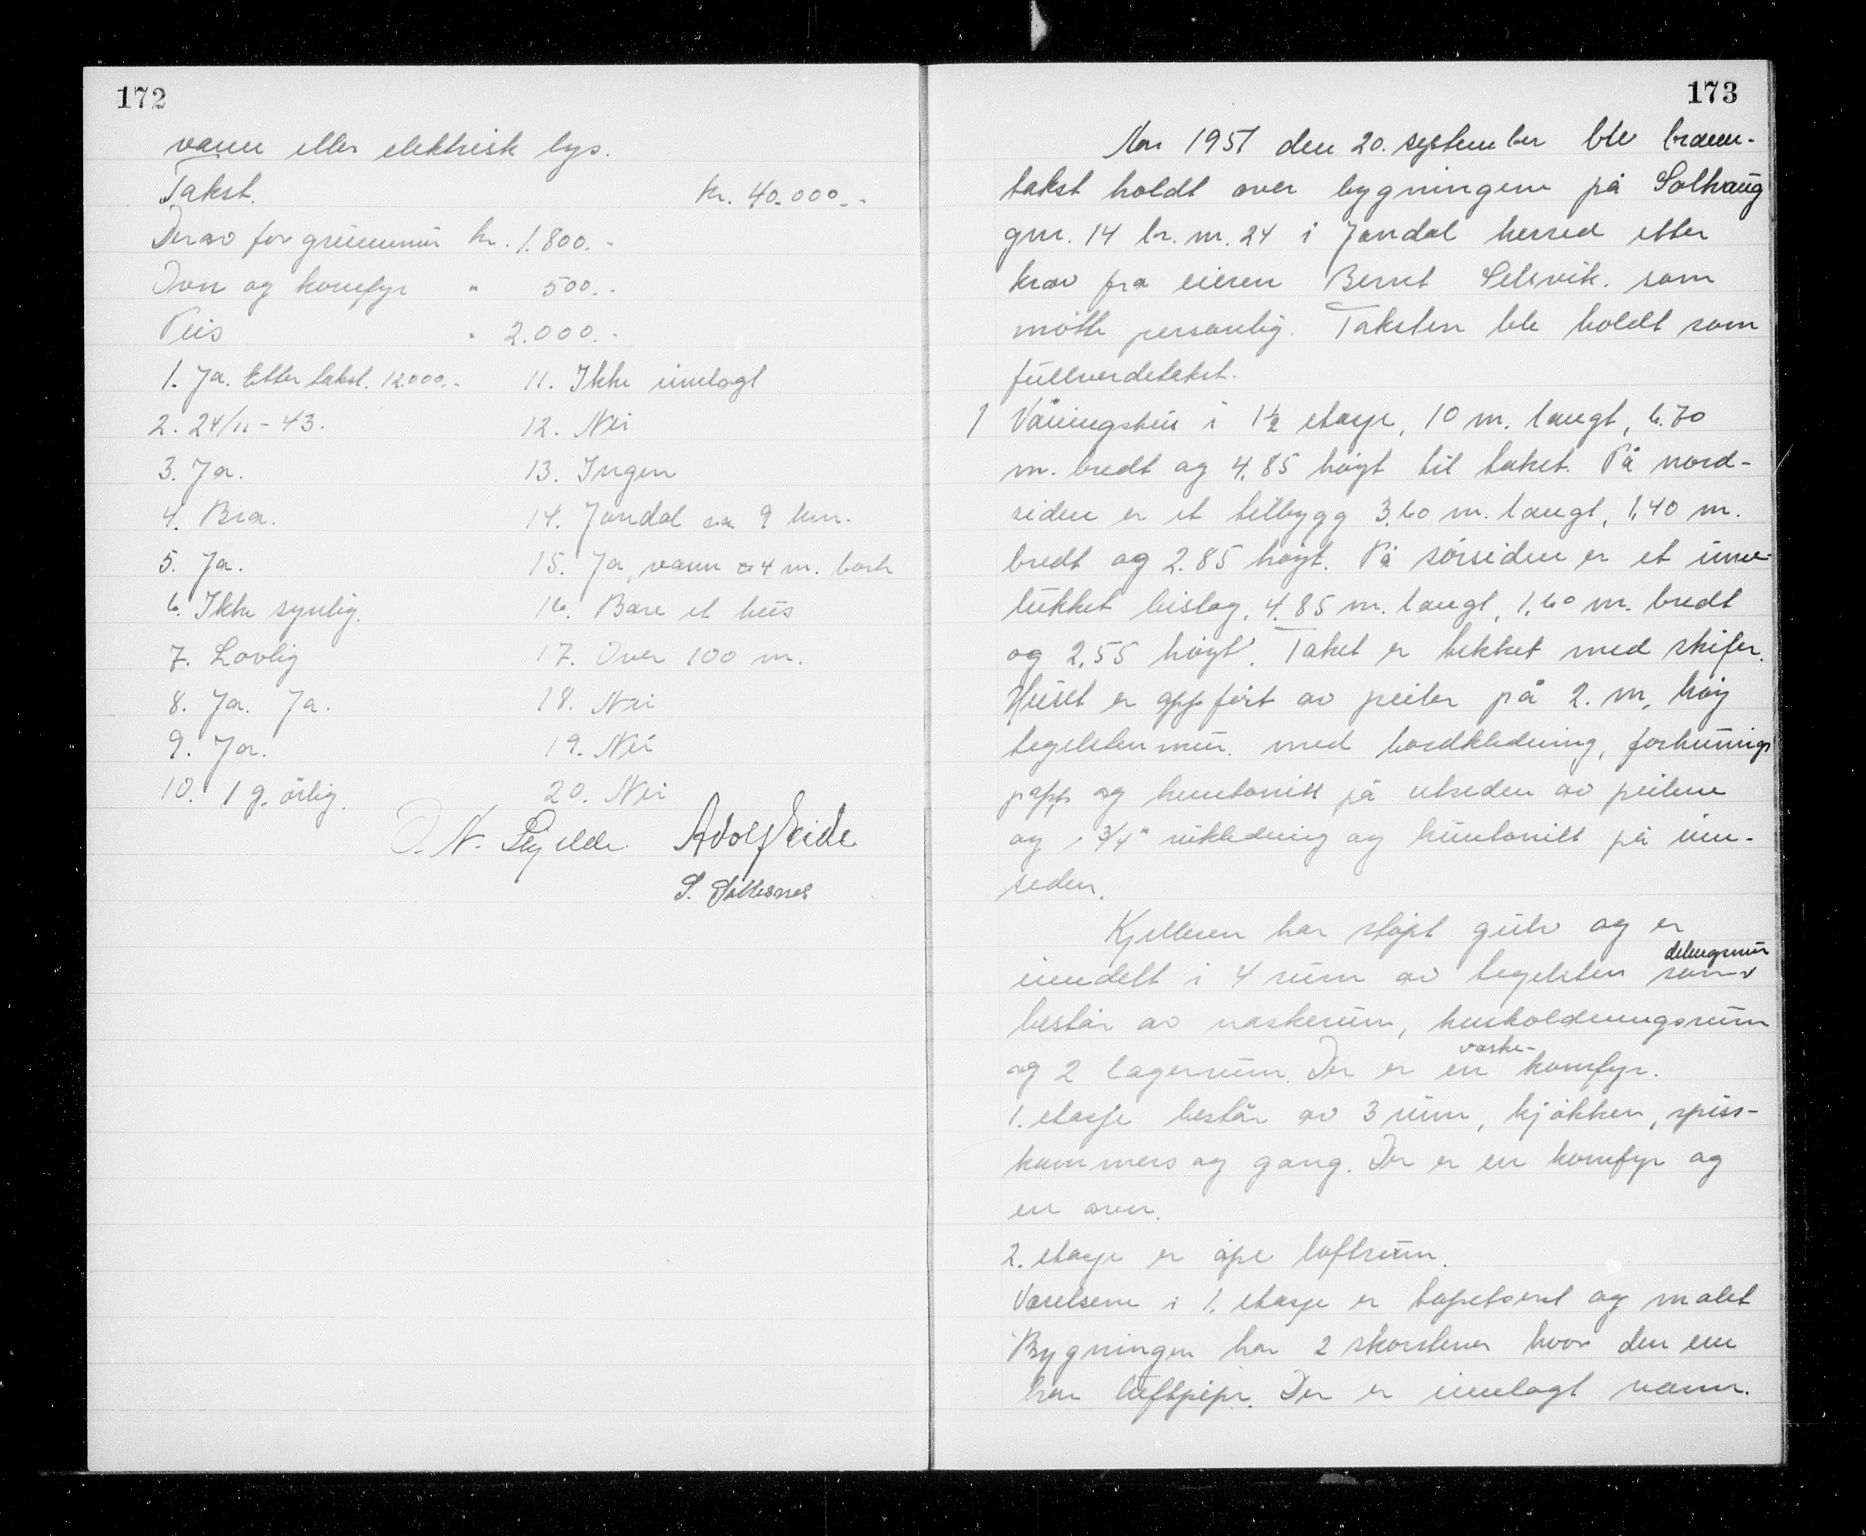 172
vann eller elektrisk lys.
Takst. kr. 40.000.-
Derav for grunnmur kr. 1.800.-
Ovn og komfyr " 500.-
Peis " 2.000.-
1. Ja. Etter takst. 12000.-
2. 24/11-43.
3. Ja.
4. Bra.
5. Ja.
6. Ikke synlig.
7. Lovlig
8. Ja. Ja.
9. Ja.
10. 1 g. årlig.
11. Ikke innlagt
12. Nei
13. Ingen
14. Jondal ca 9 km.
15. Ja, vann 4 m. bort
16. Bare et hus
17. Over 100 m.
18. Nei
19. Nei
20. Nei
O. N. Skjelde. Adolf Eide
S.
173
År 1951 den 20. september ble brann-
takst holdt over bygningene på Solhaug
gnr. 14 br. nr. 24 i Jondal herred etter
krav fra eieren Bernt Selsvik. som
møtte personlig. Taksten ble holdt som
fullverdetakst.
1 Våningshus i 1½ etasje, 10 m. langt, 6.70
m. bredt og 4,85 høgt til taket. På nord-
siden er et tilbygg 3,60 m. langt, 1,40 m.
bredt og 2.85 høgt. På sørsiden er et inne-
lukket bislag, 4,85 m. langt, 1,60 m. bredt
og 2,55 høgt. Taket er tekket med skifer.
Huset er oppført av peiler på 2. m. høg
teglstenmur. med bordkledning, forhunings
papp og huntonitt på utsiden av peilene
og 3/4" kledning og huntonitt på inn-
siden.
Kjelleren har støpt gulv og er
delingsmur
inndelt i 4 rum av teglsten som
består av vaskerum, husholdningsrum
vaske-
og 2 lagerrum. Der er en komfyr.
1. etasje består av 3 rum, kjøkken, spiss-
kammers og gang. Der er en komfyr og
en ovn.
2. etasje er åpe loftrum.
Værelsene i 1. etasje er tapetsert og malet
Bygningen har 2 skorstener hvor den ene
har luftpipe. Der er innlagt vann.